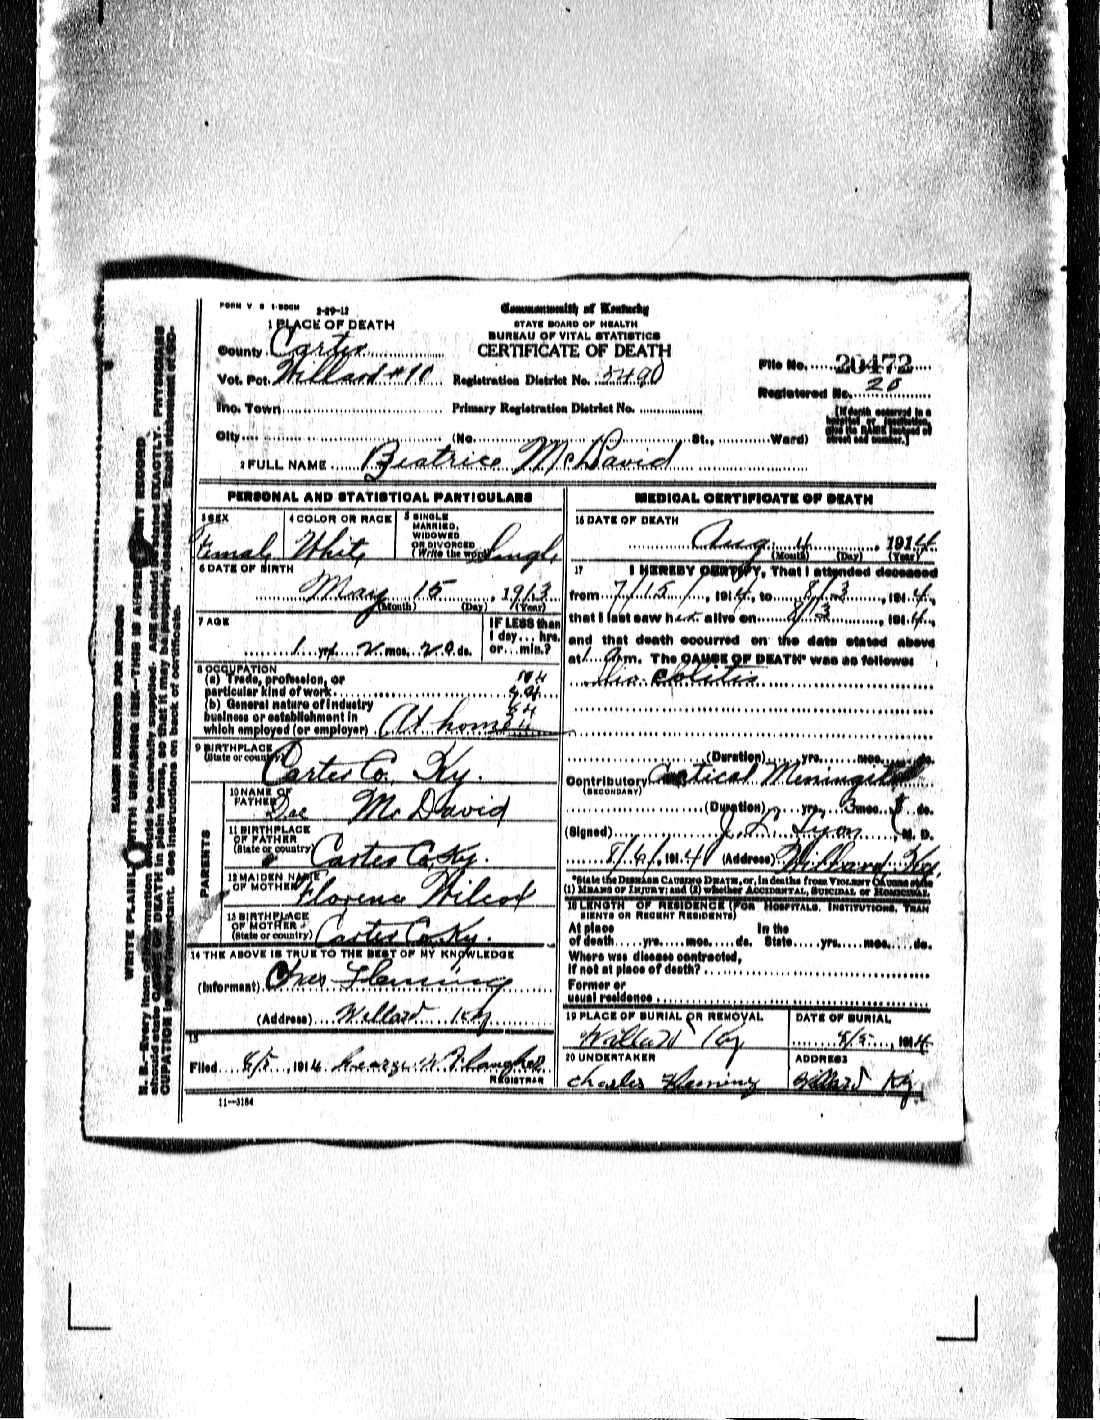 FORM V S 1-500M 2-29-12
Commonwealth of Kentucky
STATE BOARD OF HEALTH
BUREAU OF VITAL STATISTICS
CERTIFICATE OF DEATH
1 PLACE OF DEATH
County Carter
Vot. Pct. Willard #10 Registration District No. 5490
Ino. Town Primary Registration District No.
City (No. St., Ward)
File No. 20472
Registered No. 20
[If death occurred in a hospital or institution, give its NAME instead of street and number.]
2 FULL NAME Beatrice McDavid
PERSONAL AND STATISTICAL PARTICULARS
3 SEX Female
4 COLOR OR RACE White
5 SINGLE MARRIED, WIDOWED OR DIVORCED (Write the word) Single
6 DATE OF BIRTH
May 15, 1913
(Month) (Day) (Year)
7 AGE
1 yrs 2 mos. 20 ds.
IF LESS than 1 day... hrs. or... min.?
8 OCCUPATION
(a) Trade, profession, or particular kind of work
(b) General nature of industry business or establishment in which employed (or employer) At home
9 BIRTHPLACE (State or country) Carter Co. Ky.
PARENTS
10 NAME OF FATHER McDavid
11 BIRTHPLACE OF FATHER (State or country) Carter Co. Ky.
12 MAIDEN NAME OF MOTHER Florence Wilcox
13 BIRTHPLACE OF MOTHER (State or country) Carter Co. Ky.
14 THE ABOVE IS TRUE TO THE BEST OF MY KNOWLEDGE
(Informant) Chas Fleming
(Address) Willard Ky
15
Filed 8/5, 1914 George W
REGISTRAR
11—3184
MEDICAL CERTIFICATE OF DEATH
16 DATE OF DEATH
Aug 4, 1914
(Month) (Day) (Year)
17 I HEREBY CERTIFY, That I attended deceased
from 7/15, 1914, to 8/3, 1914,
that I last saw her alive on 8/3, 1914,
and that death occurred on the date stated above
at 1 am. The CAUSE OF DEATH* was as follows:
Ilio Colitis
(Duration) yrs. mos. ds.
Contributory Meningitis
(SECONDARY)
(Duration) yrs. 3 mos. ds.
(Signed) J. L. Lyon M. D.
8/6/, 1914 (Address) Willard Ky.
*State the DISEASE CAUSING DEATH, or, in deaths from VIOLENT CAUSES state
(1) MEANS OF INJURY; and (2) whether ACCIDENTAL, SUICIDAL or HOMICIDAL.
18 LENGTH OF RESIDENCE (FOR HOSPITALS, INSTITUTIONS, TRANSIENTS OR RECENT RESIDENTS)
At place In the
of death yrs. mos. ds. State yrs. mos. ds.
Where was disease contracted,
If not at place of death?
Former or
usual residence
19 PLACE OF BURIAL OR REMOVAL DATE OF BURIAL
Willard Ky 8/5, 1914
20 UNDERTAKER ADDRESS
Charles Fleming Willard Ky.
MARGIN RESERVED FOR BINDING
WRITE PLAINLY WITH UNFADING INK—THIS IS A PERMANENT RECORD